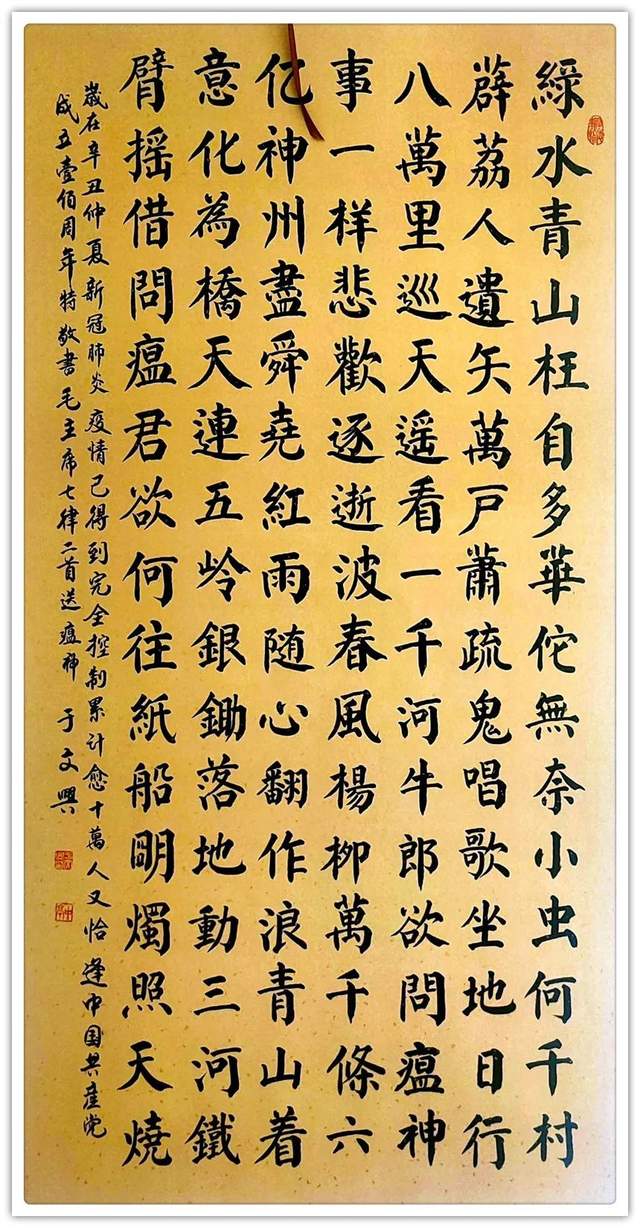 綠水青山枉自多華佗無奈小虫何千村
薜荔人遺矢萬戸蕭疏鬼唱歌坐地日行
八萬里巡天遥看一千河牛郎欲問瘟神
事一样悲歡逐逝波春風楊柳萬千條六
亿神州盡舜堯紅雨随心翻作浪青山着
意化為橋天連五岭銀鋤落地動三河鐵
臂摇借問瘟君欲何往紙船明燭照天燒
歲在辛丑仲夏新冠肺炎疫情已得到完全控制累计愈十萬人又恰逢中国共產党
成立壹佰周年特敬書毛主席七律二首送瘟神 于文興